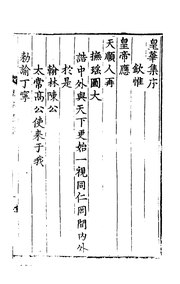 皇華集序
欽惟
皇帝應
天順人再
撫瑤圖大
誥中外與天下更始一視同仁罔間內外
於是
翰林陳公
太常高公使來于我
勑諭丁寧